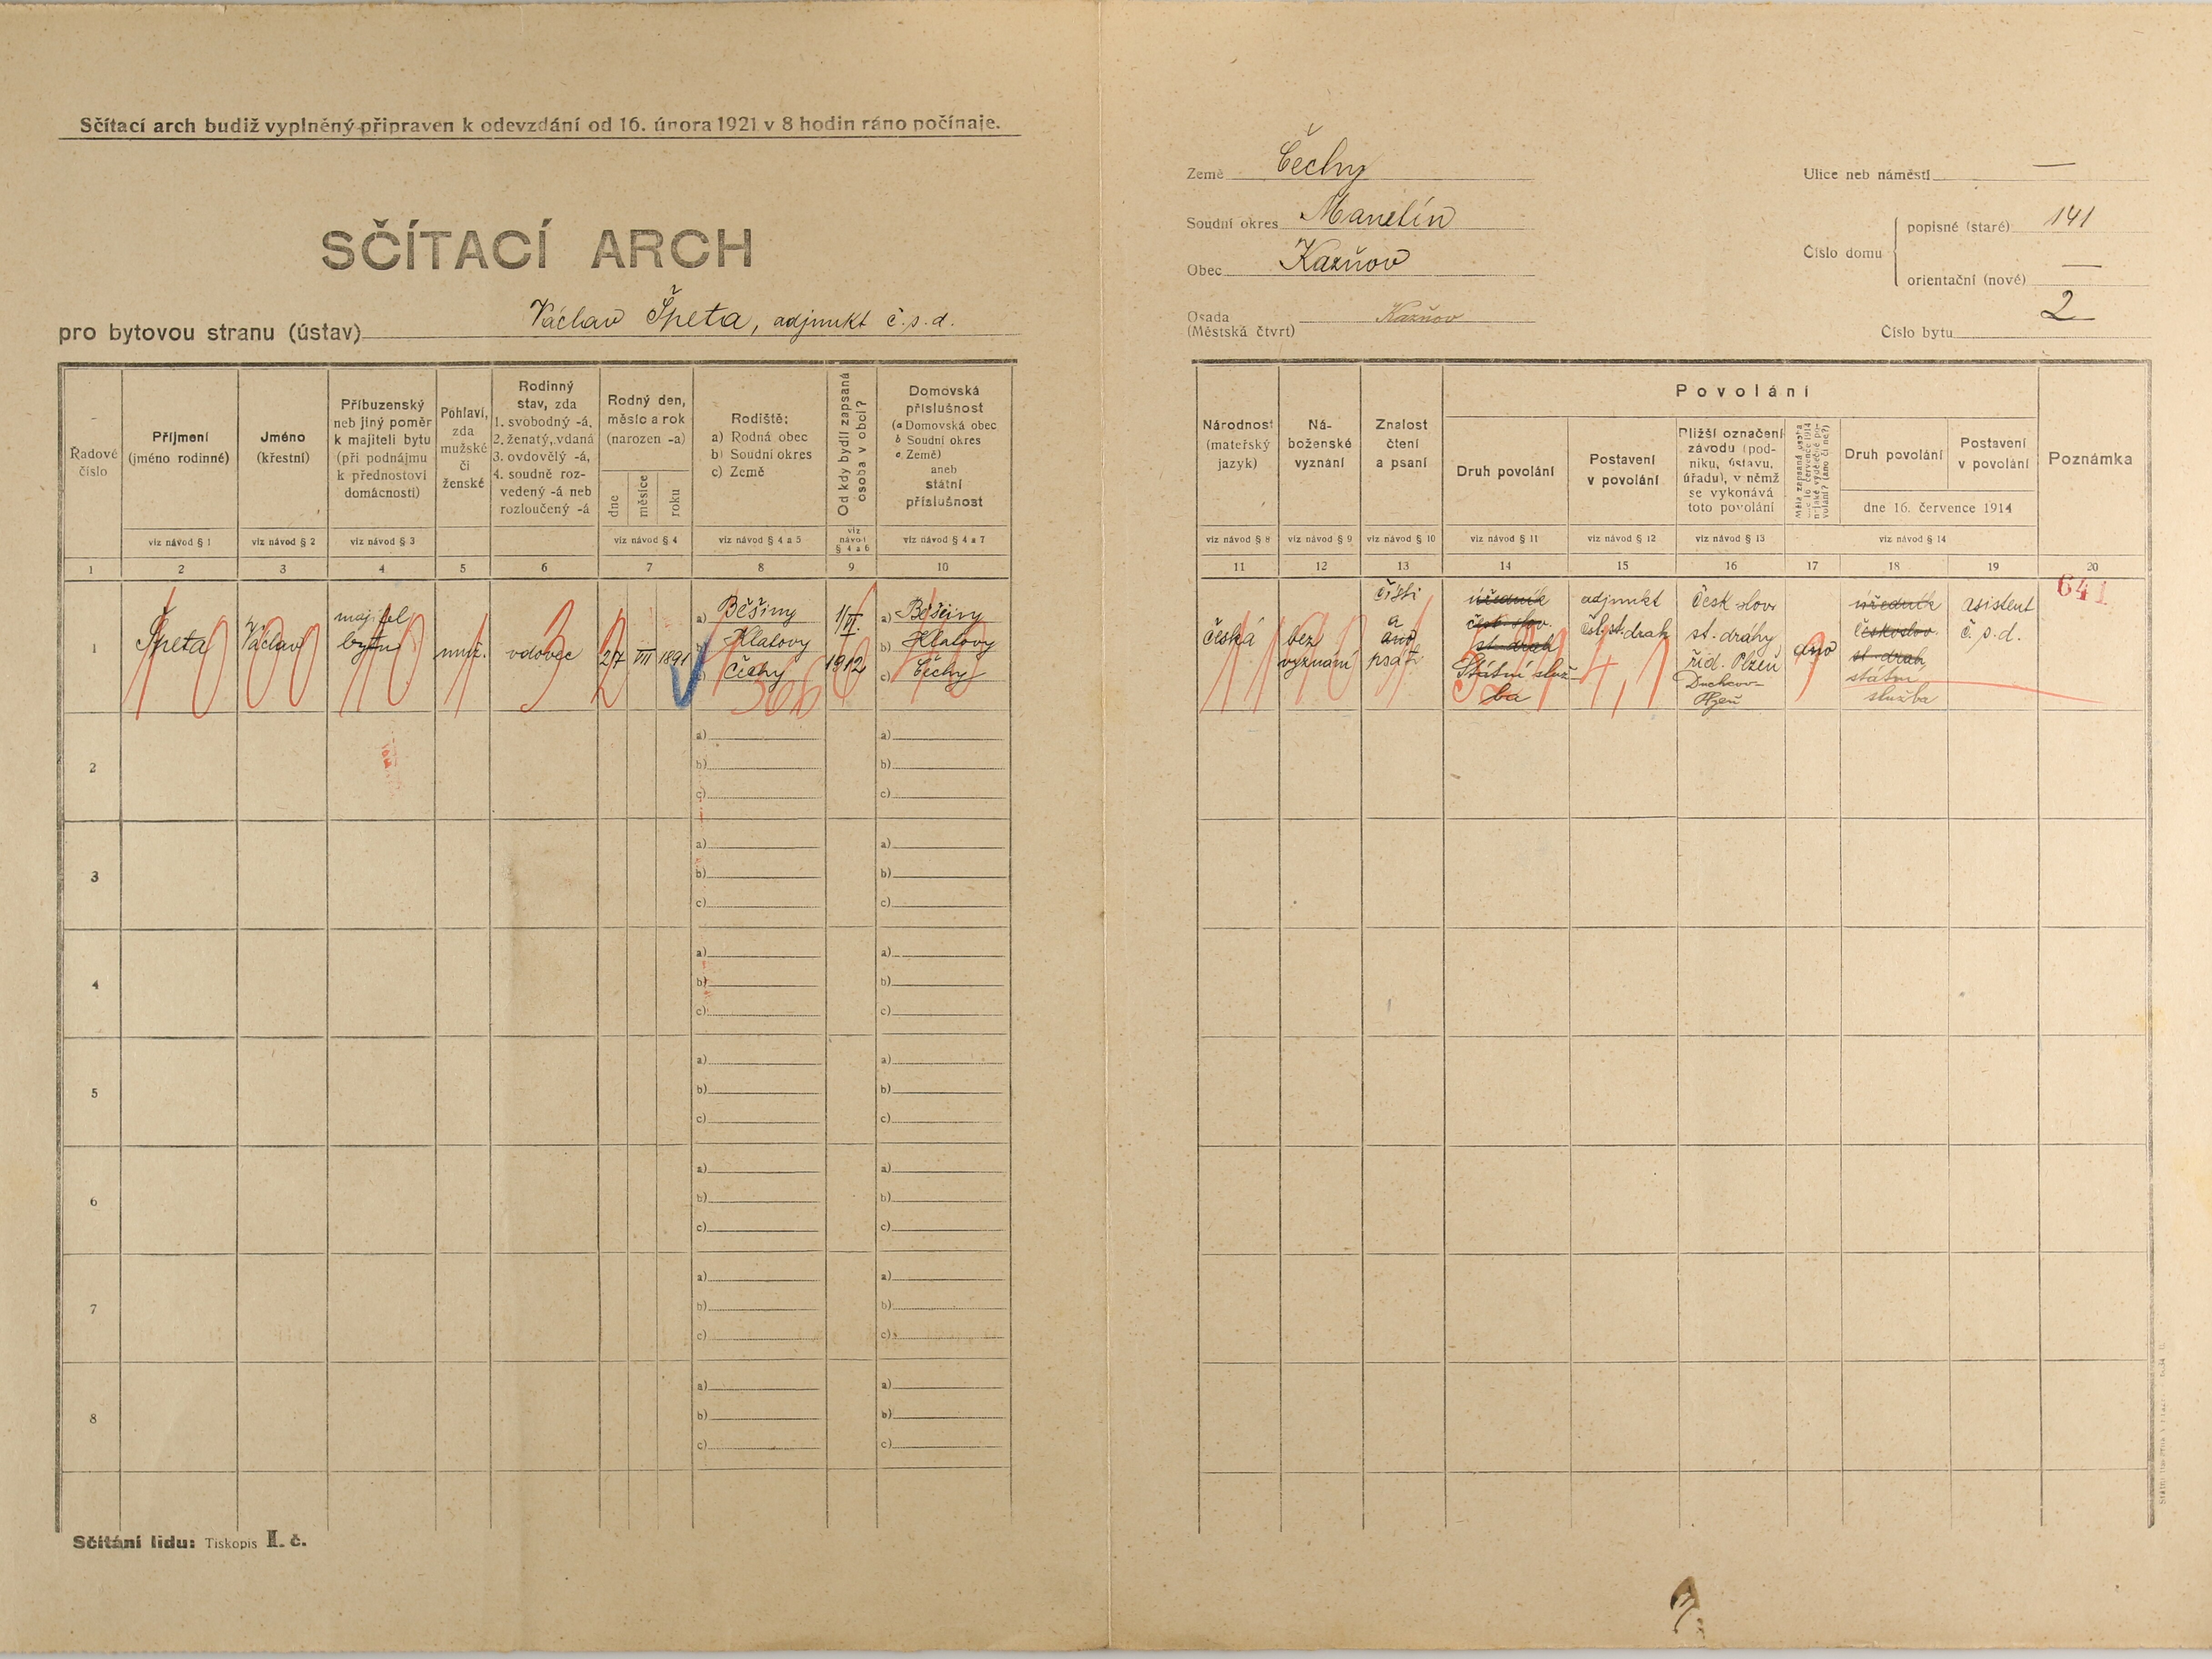 Sčítací arch budiž vyplněný připraven k odevzdání od 16. února 1921 v 8 hodin ráno počínaje.
SČÍTACÍ ARCH
pro bytovou stranu (ústav) Václav Špeta, adjunkt č.s.d.
Země Čechy
Soudní okres Manetín
Obec Kazňov
Osada Kazňov
(Městská čtvrť)
Ulice neb náměstí —
Číslo domu
popisné (staré) 141
orientační (nové) —
Číslo bytu 2
Řadové číslo
Příjmení
(jméno rodinné)
viz návod § 1
Jméno
(křestní)
viz návod § 2
Příbuzenský
neb jiný poměr
k majiteli bytu
(při podnájmu
k přednostovi
domácnosti)
viz návod § 3
Pohlaví,
zda
mužské
či
ženské
Rodinný
stav, zda
1. svobodný -á,
2. ženatý, vdaná
3. ovdovělý -á,
4. soudně roz-
vedený -á neb
rozloučený -á
Rodný den,
měsíc a rok
(narozen -a)
dne
měsíce
roku
viz návod § 4
Rodiště:
a) Rodná obec
b) Soudní okres
c) Země
viz návod § 4 a 5
Od kdy bydlí zapsaná
osoba v obci?
viz
návod
§ 4 a 6
Domovská
příslušnost
(a Domovská obec
b Soudní okres
c Země)
aneb
státní
příslušnost
viz návod § 4 a 7
1 2 3 4 5 6 7 8 9 10
Národnost
(mateřský
jazyk)
viz návod § 8
Ná-
boženské
vyznání
viz návod § 9
Znalost
čtení
a psaní
viz návod § 10
Povolání
Druh povolání
viz návod § 11
Postavení
v povolání
viz návod § 12
Bližší označení
závodu (pod-
niku, ústavu,
úřadu), v němž
se vykonává
toto povolání
viz návod § 13
Měla zapsaná osoba
dne 16. července 1914
nějaké výdělečné po-
volání? (ano či ne?)
Druh povolání
Postavení
v povolání
dne 16. července 1914
viz návod § 14
Poznámka
11 12 13 14 15 16 17 18 19 20
1
Špeta
Václav
majitel
bytu
muž.
vdovec
27 VII 1891
a) Běšiny
b) Klatovy
c) Čechy
1/VI.
1912
a) Běšiny
b) Klatovy
c) Čechy
366
česká
bez
vyznání
čísti
a
ano
psáti
úředník
česk. slov.
st. drah
Státní služ-
ba
adjunkt
čsl. st. drah
česk slov
st. dráhy
řid. Plzeň
Duchcov-
Plzeň
ano
úředník
českoslov.
st. drah
státní
služba
asistent
č. s. d.
641
2
a)
b)
c)
a)
b)
c)
3
a)
b)
c)
a)
b)
c)
4
a)
b)
c)
a)
b)
c)
5
a)
b)
c)
a)
b)
c)
6
a)
b)
c)
a)
b)
c)
7
a)
b)
c)
a)
b)
c)
8
a)
b)
c)
a)
b)
c)
Sčítání lidu: Tiskopis II. č.